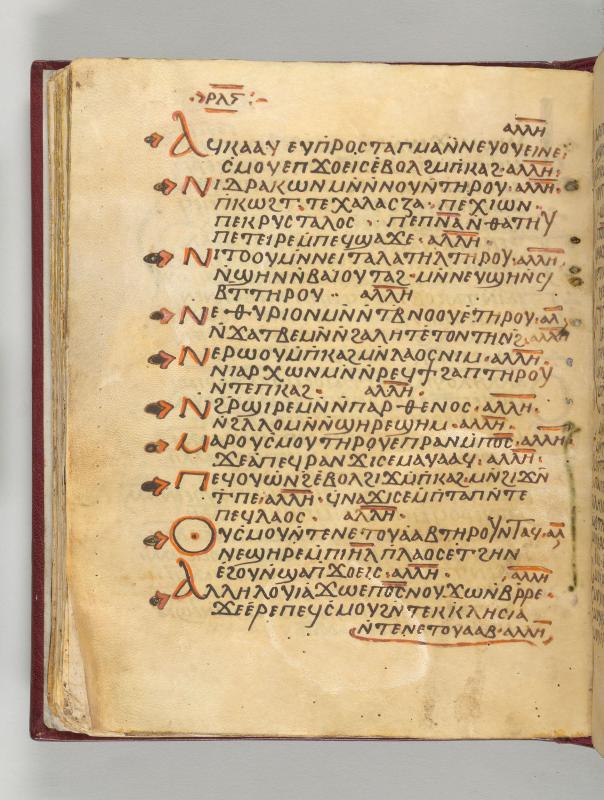 ⲣⲗⲋ
ⲁⲗⲗⲏ
Ⲁϥⲕⲁⲁⲩ ⲉⲩⲡⲣⲟⲥⲧⲁⲅⲙⲁⲛ̄ⲛⲉⲩⲟⲩⲉⲓⲛⲉ·
ⲥ̄ⲙⲟⲩⲉⲡϫⲟⲉⲓⲥⲉ̄ⲃⲟⲗϩⲙ̄ⲡⲕⲁϩ·ⲁⲗⲗⲏ·
Ⲛⲓⲇⲣⲁⲕⲱⲛⲙⲛ̄ⲛ̄ⲛⲟⲩⲛ̄ⲧⲏⲣⲟⲩ·ⲁⲗⲗⲏ·
ⲡ̄ⲕⲱϩⲧ·ⲧⲉⲭⲁⲗⲁⲥⲍⲁ·ⲡⲉⲭⲓⲱⲛ·
ⲡⲉⲕⲣⲩⲥⲧⲁⲗⲟⲥ· ⲡⲉⲡⲛ̄ⲁⲛ̄ϩⲁⲧⲏⲩ
ⲡⲉⲧⲉⲓⲣⲉⲙ̄ⲡⲉϥϣⲁϫⲉ·ⲁⲗⲗⲏ·
Ⲛⲓⲧⲟⲟⲩⲙⲛ̄ⲛⲉⲓⲧⲁⲗⲁⲧⲏⲗⲧⲏⲣⲟⲩ·ⲁⲗⲗⲏ·
ⲛ̄ϣⲏⲛⲛ̄ⲃⲁⲓⲟⲩⲧⲁϩ·ⲙⲛ̄ⲛⲉⲩϣⲏⲛⲥⲓ
ⲃⲧⲧⲏⲣⲟⲩ· ⲁⲗⲗⲏ
Ⲛⲉⲑⲩⲣⲓⲟⲛⲙⲛ̄ⲛ̄ⲧⲃⲛⲟⲟⲩⲉ̄ⲧⲏⲣⲟⲩ·ⲁⲗ
ⲛ̄ϫⲁⲧⲃⲉⲙⲛ̄ⲛ̄ϩⲁⲗⲏⲧⲉⲧⲟⲛⲧⲏⲛ̄ϩ·ⲁⲗⲗⲏ
Ⲛⲉⲣⲱⲟⲩⲙ̄ⲡⲕⲁϩⲙⲛ̄ⲗⲁⲟⲥⲛⲓⲙ·ⲁⲗⲗⲏ·
ⲛⲓⲁⲣⲭⲱⲛⲙⲛ̄ⲛ̄ⲣⲉϥϯϩⲁⲡⲧⲏⲣⲟⲩ
ⲛ̄ⲧⲉⲡⲕⲁϩ· ⲁⲗⲗⲏ·
Ⲛϩⲣ̄ϣⲓⲣⲉⲙⲛ̄ⲛ̄ⲡⲁⲣⲑⲉⲛⲟⲥ·ⲁⲗⲗⲏ·
ⲛ̄ϩⲗ̄ⲗⲟⲙⲛ̄ⲛ̄ϣⲏⲣⲉϣⲏⲙ·ⲁⲗⲗⲏ·
Ⲙⲁⲣⲟⲩⲥ̄ⲙⲟⲩⲧⲏⲣⲟⲩⲉⲡⲣⲁⲛⲙ̄ⲡⲟ̄ⲥ̄·ⲁⲗⲗⲏ·
ϫⲉⲁ̄ⲡⲉϥⲣⲁⲛϫⲓⲥⲉⲙⲁⲩⲁⲁϥ·ⲁⲗⲗⲏ·
Ⲡⲉϥⲟⲩⲱⲛϩⲉ̄ⲃⲟⲗϩⲓϫⲙ̄ⲡⲕⲁϩ·ⲙⲛ̄ϩⲓϫⲛ̄
ⲧ̄ⲡⲉ·ⲁⲗⲗⲏ·ϥ̄ⲛⲁϫⲓⲥⲉⲙ̄ⲡⲧⲁⲡⲛ̄ⲧⲉ
ⲡⲉϥⲗⲁⲟⲥ· ⲁⲗⲗⲏ·
Ⲟⲩⲥ̄ⲙⲟⲩⲛ̄ⲧⲉⲛⲉⲧⲟⲩⲁⲁⲃⲧⲏⲣⲟⲩⲛ̄ⲧⲁϥ·ⲁⲗ
ⲛⲉϣⲏⲣⲉⲙ̄ⲡⲓ̄ⲏ̄ⲗ̄ⲡⲗⲁⲟⲥⲉⲧϩⲏⲛ
ⲉϩⲟⲩⲛϣⲁⲡϫⲟⲉⲓⲥ·ⲁⲗⲗⲏ· ⲁⲗⲗⲏ
Ⲁⲗⲗⲏⲗⲟⲩⲓⲁ̄ϫⲱⲉⲡⲟ̄ⲥ̄ⲛⲟⲩϫⲱⲛ̄ⲃⲣ̄ⲣⲉ·
ϫⲉⲉ̄ⲣⲉⲡⲉϥⲥ̄ⲙⲟⲩϩⲛ̄ⲧⲉⲕⲕ̄ⲗⲏⲥⲓⲁ
ⲛ̄ⲧⲉⲛⲉⲧⲟⲩⲁⲁⲃ·ⲁⲗⲗⲏ